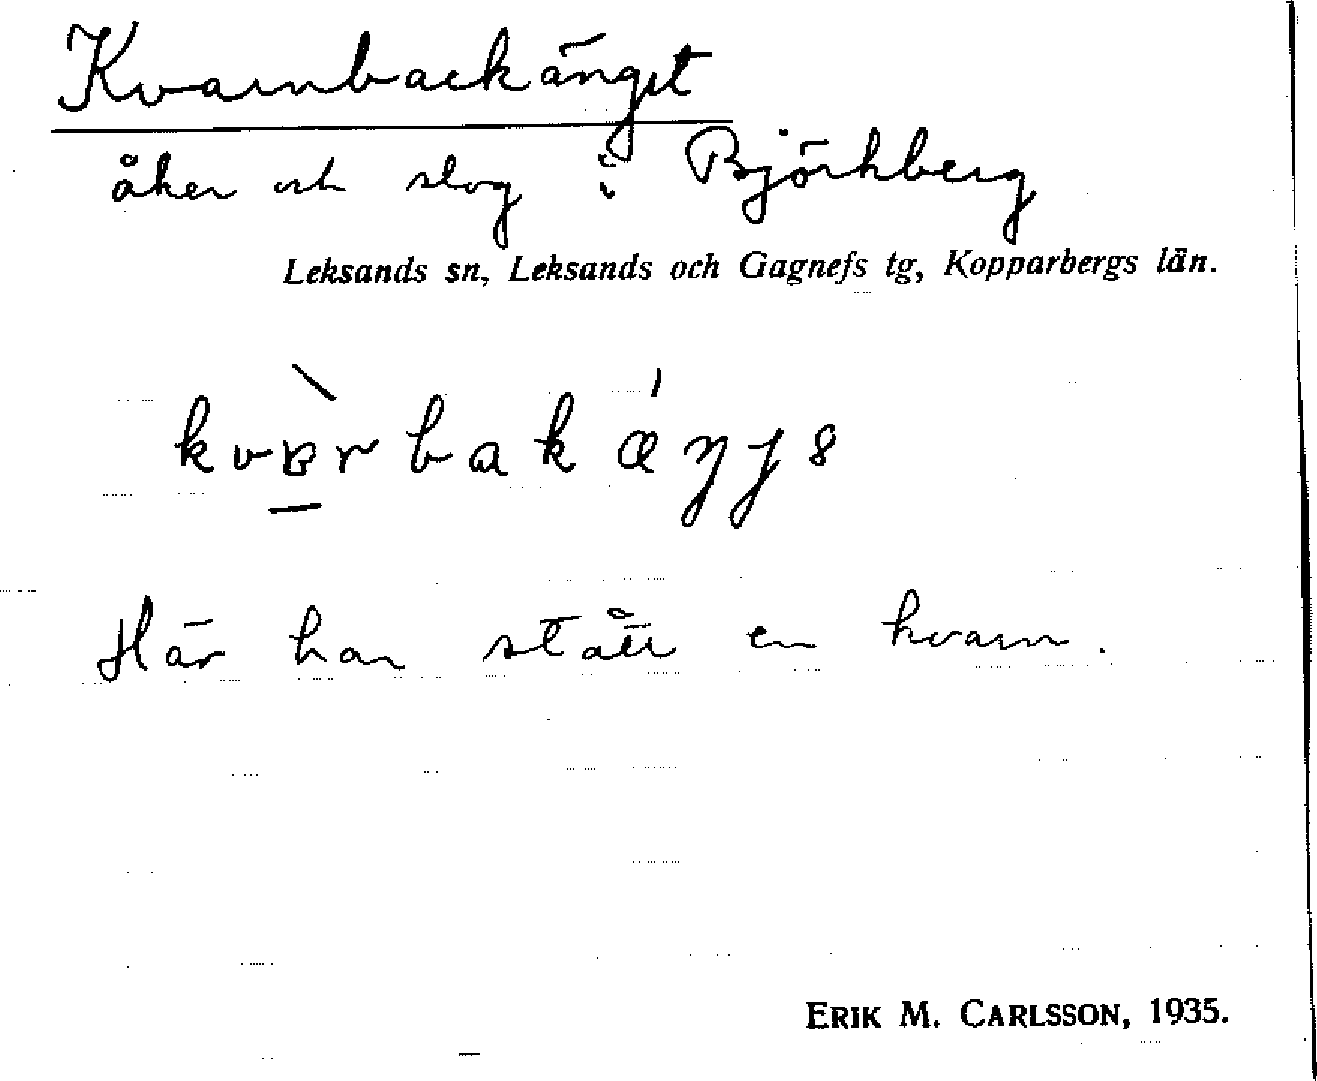 Kvarnbackänget
åker och slog i Björkberg
Leksands sn, Leksands och Gagnefs tg, Kopparbergs län.
Här har stått en kvarn.
ERIK M. CARLSSON, 1935.